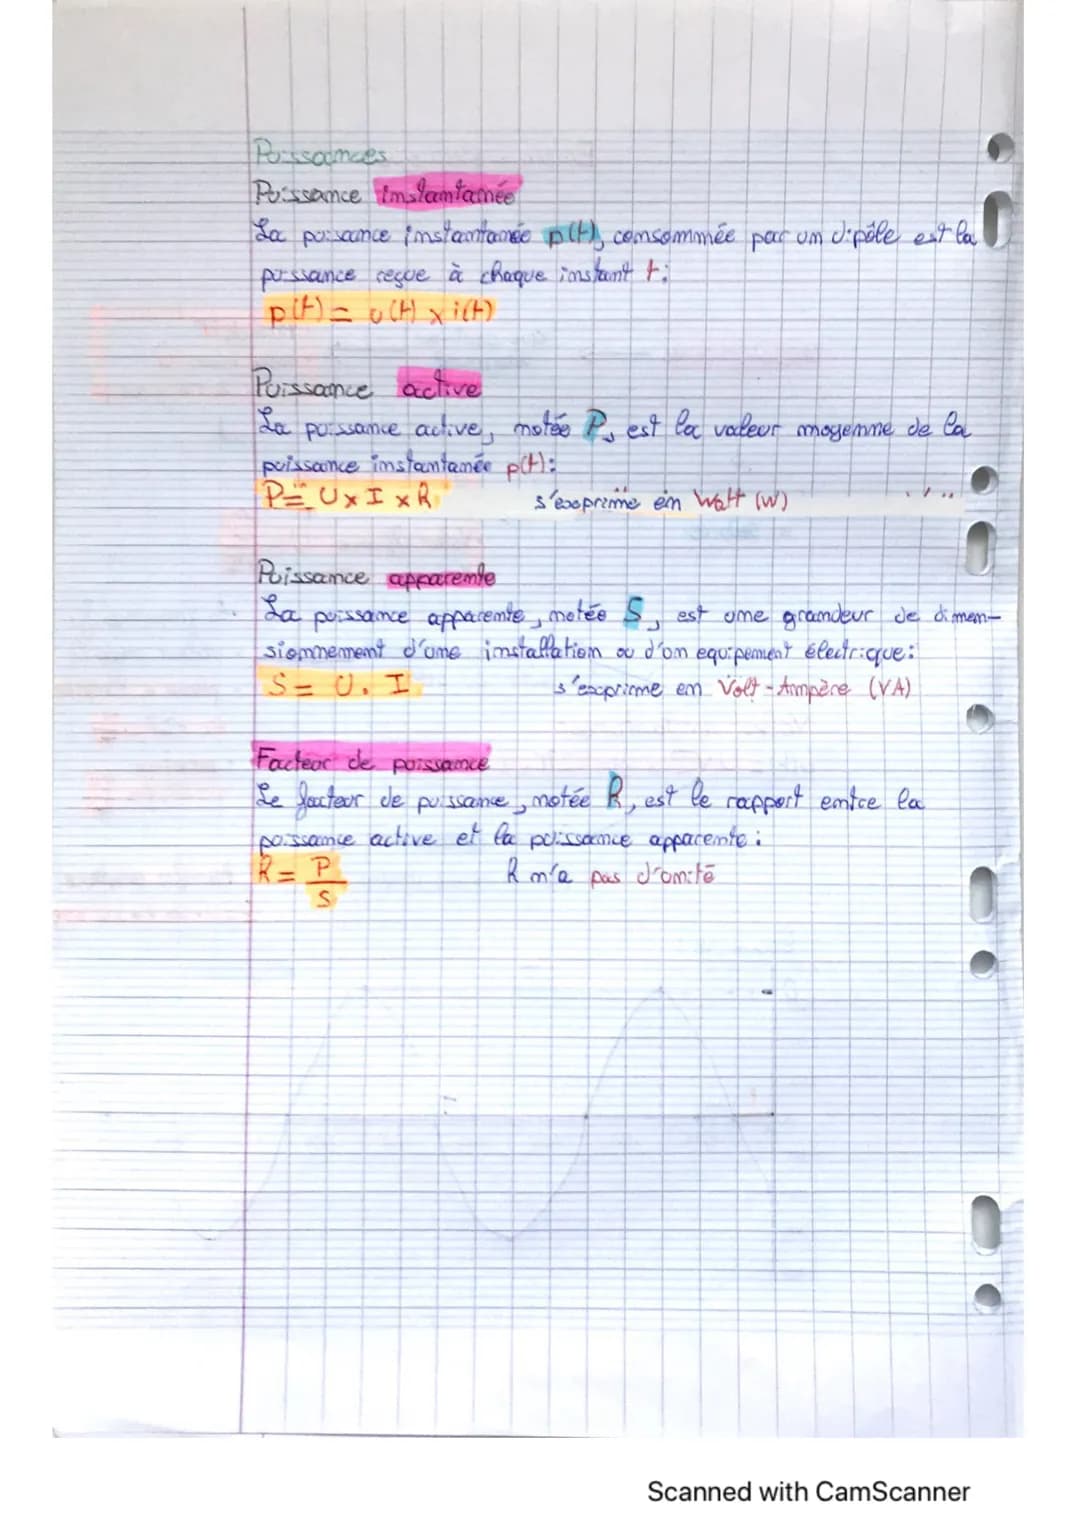 Puissances
Puissance instantanée
La puissance instantanée p(t), consommée par un dipôle est la
puissance reçue à chaque instant t:
p(t) = u(t) x i(t)
Puissance active
La puissance active, notée P, est la valeur moyenne de la
puissance instantanée p(t):
P = U x I x R s'exprime en Watt (W)
Puissance apparente
La puissance apparente, notée S, est une grandeur de dimen-
sionnement d'une installation ou d'un equipement électrique:
S = U . I s'exprime en Volt-Ampère (VA)
Facteur de puissance
Le facteur de puissance, notée R, est le rapport entre la
puissance active et la puissance apparente:
R = P
S
R n'a pas d'unité
Scanned with CamScanner